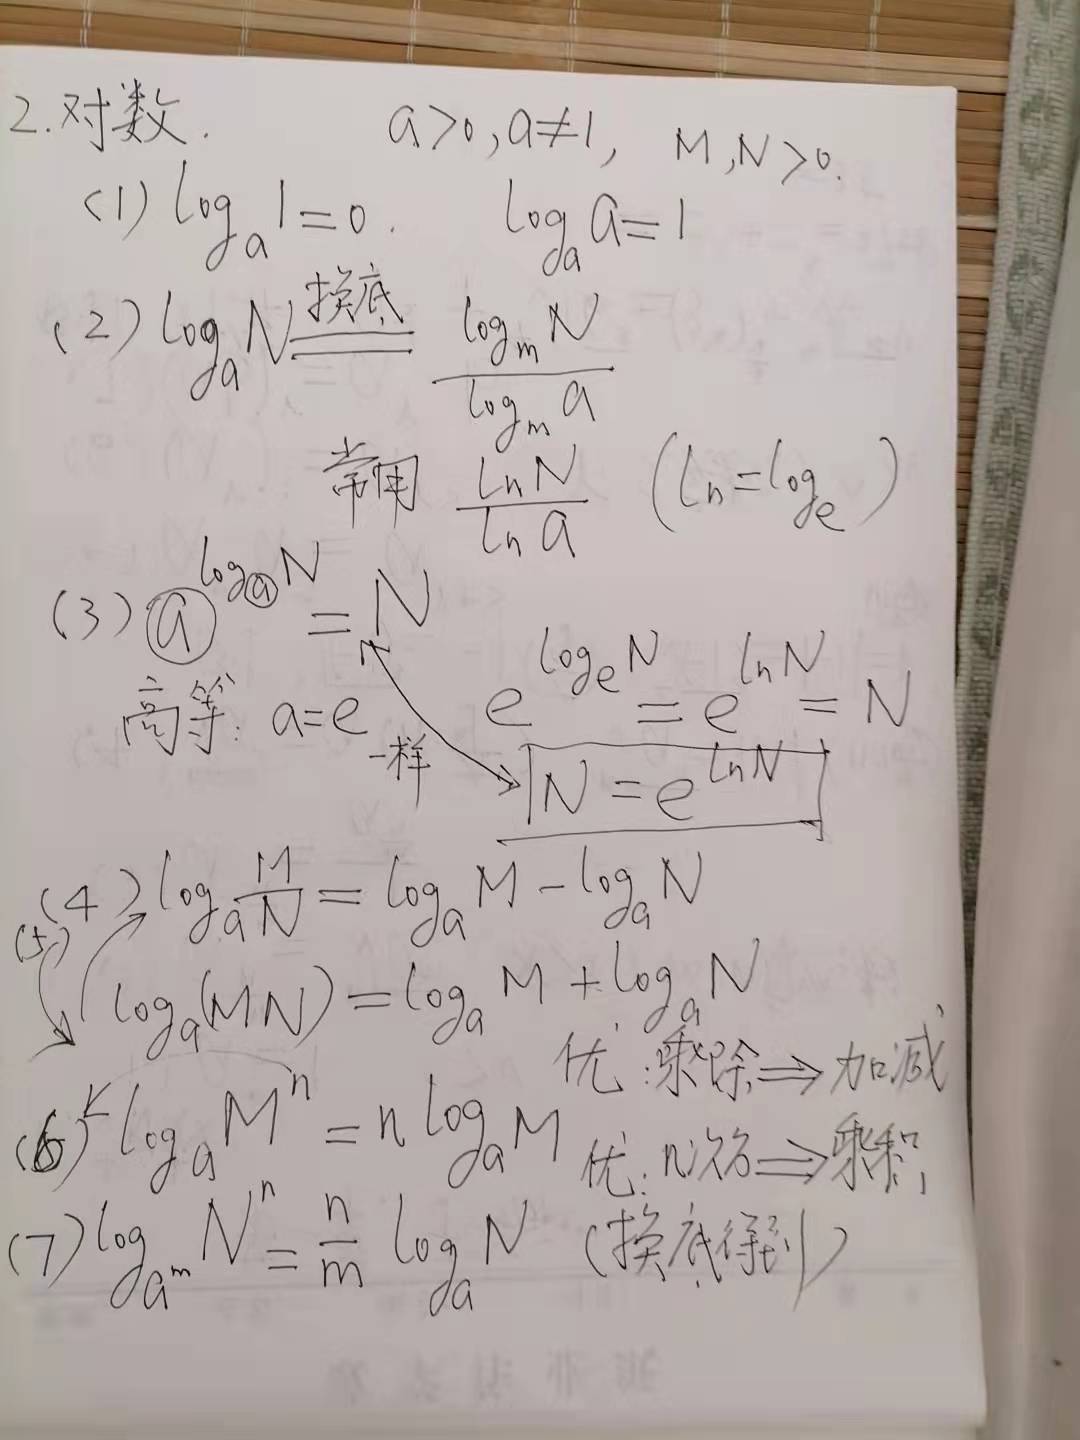 2.对数. a>0,a≠1, M,N>0.
(1) logₐ1=0. logₐa=1
(2) logₐN 换底 = logₘN / logₘa
常用 lnN / lna (ln=logₑ)
(3) a^(logₐN) = N
高等: a=e e^(logₑN) = e^(lnN) = N
一样 N=e^(lnN)
(4) logₐ M/N = logₐM - logₐN
(5) logₐ(MN) = logₐM + logₐN
优:乘除⇒加减
(6) logₐMⁿ = n logₐM 优:n次方⇒乘积
(7) log_(aᵐ) Nⁿ = n/m logₐN (换底得到)